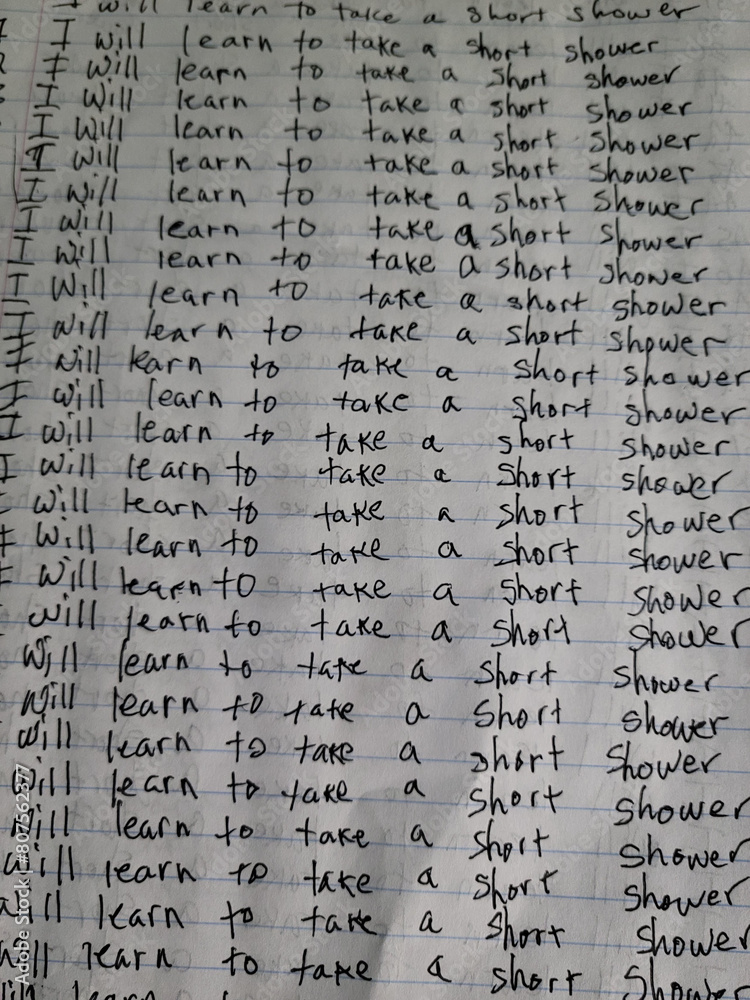 I will learn to take a short shower
I will learn to take a short shower
I will learn to take a short shower
I will learn to take a short shower
I will learn to take a short shower
I will learn to take a short shower
I will learn to take a short shower
I will learn to take a short shower
I will learn to take a short shower
I will learn to take a short shower
I will learn to take a short shower
I will learn to take a short shower
I will learn to take a short shower
I will learn to take a short shower
I will learn to take a short shower
will learn to take a short shower
I will learn to take a short shower
I will learn to take a short shower
will learn to take a short shower
will learn to take a short shower
will learn to take a short shower
will learn to take a short shower
will learn to take a short shower
will learn to take a short shower
will learn to take a short shower
will learn to take a short shower
will learn to take a short shower
learn
Adobe Stock | #807562377